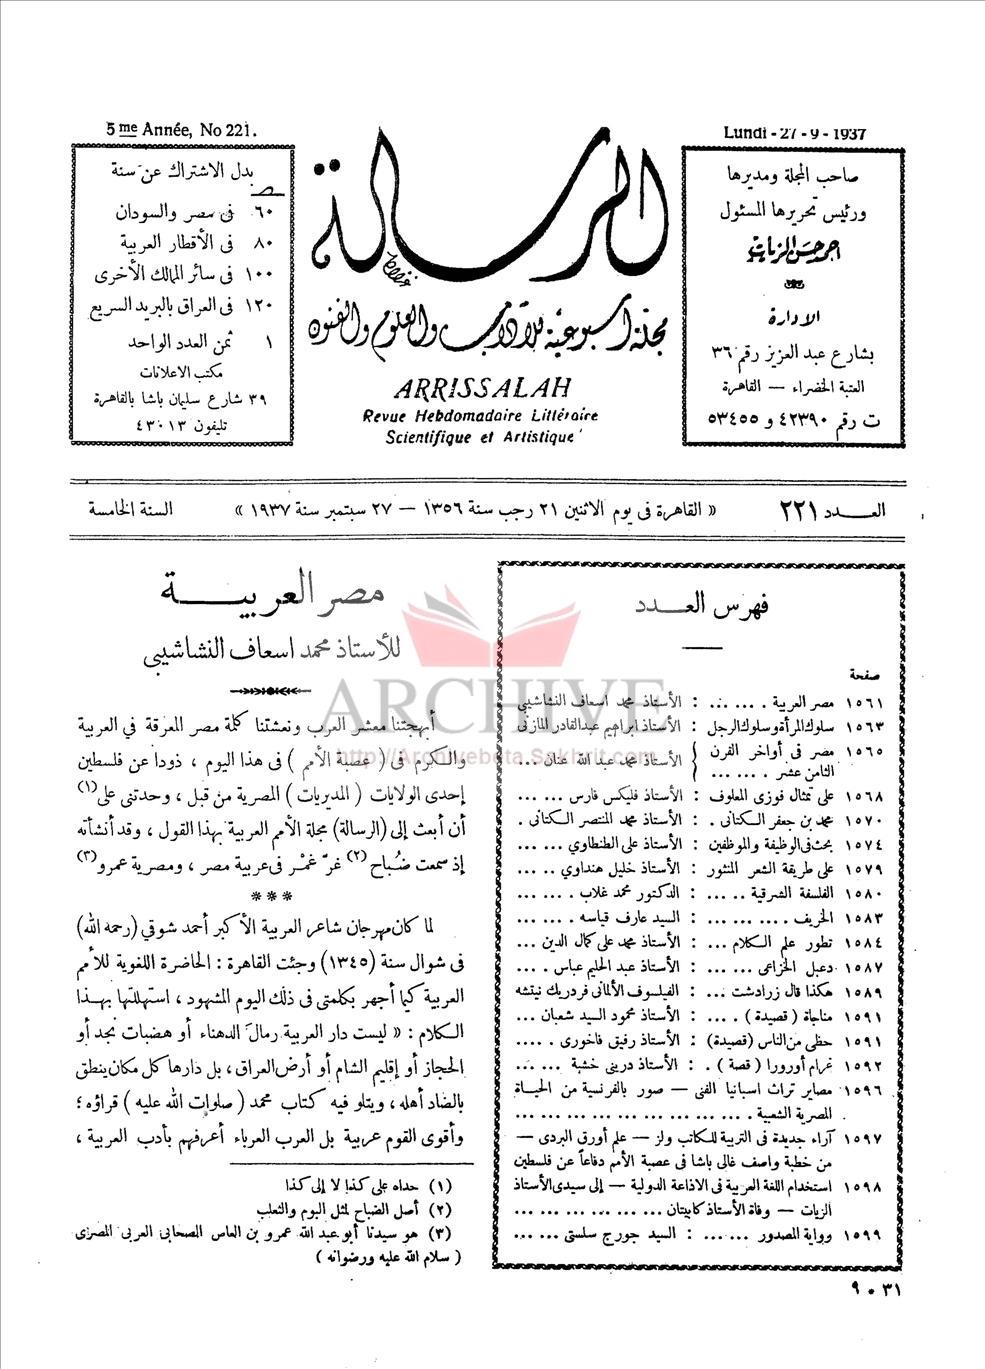 5me Année, No 221.
Lundi - 27 - 9 - 1937
صاحب المجلة ومديرها
ورئيس تحريرها المسئول
احمد حسن الزيات
الادارة
بشارع عبد العزيز رقم ٣٦
العتبة الخضراء — القاهرة
ت رقم ٤٢٣٩٠ و ٥٣٤٥٥
الرسالة
مجلة أسبوعية للآداب والعلوم والفنون
ARRISSALAH
Revue Hebdomadaire Littéraire
Scientifique et Artistique
بدل الاشتراك عن سنة
ص
٦٠ فى مصر والسودان
٨٠ فى الأقطار العربية
١٠٠ فى سائر الممالك الأخرى
١٢٠ فى العراق بالبريد السريع
١ ثمن العدد الواحد
مكتب الاعلانات
٣٩ شارع سليمان باشا بالقاهرة
تليفون ٤٣٠١٣
العـــدد ٢٢١
« القاهرة فى يوم الاثنين ٢١ رجب سنة ١٣٥٦ — ٢٧ سبتمبر سنة ١٩٣٧ »
السنة الخامسة
فهرس العـدد
صفحة
١٥٦١ مصر العربية . ... ... : الأستاذ محمد اسعاف النشاشيبى
١٥٦٣ سلوك المرأة وسلوك الرجل : الأستاذ ابراهيم عبدالقادر المازنى
١٥٦٥ مصر فى أواخر القرن الثامن عشر . ... ... } الأستاذ محمد عبد الله عنان ...
١٥٦٨ على تمثال فوزى المعلوف : الأستاذ فليكس فارس ... ...
١٥٧٠ محمد بن جعفر الكتانى . : الأستاذ محمد المنتصر الكتانى .
١٥٧٤ بحث فى الوظيفة والموظفين : الأستاذ على الطنطاوي ... ...
١٥٧٩ على طريقة الشعر المنثور : الأستاذ خليل هنداوي ... ...
١٥٨٠ الفلسفة الشرقية ... ... : الدكتور محمد غلاب. ... ...
١٥٨٣ الخريف . ... ... ... : السيد عارف قياسه . ... ...
١٥٨٤ تطور علم الكلام ... : الأستاذ محمد على كمال الدين ...
١٥٨٧ دعبل الخزاعى ... ... : الأستاذ عبد الحليم عباس . ...
١٥٨٩ هكذا قال زرادشت ... : الفيلسوف الألمانى فردريك نيتشه
١٥٩١ مناجاة ( قصيدة ) . ... : الأستاذ محمود السيد شعبان ...
١٥٩١ حظى من الناس (قصيدة) : الأستاذ رفيق فاخورى . ...
١٥٩٢ غرام أورورا ( قصة ) . : الأستاذ دريني خشبة ... ...
١٥٩٦ مصاير تراث اسبانيا الفنى — صور بالفرنسية من الحياة
المصرية الشعبية . ... ... ... ... ... ... ...
١٥٩٧ آراء جديدة فى التربية للكاتب ولز — علم أورق البردى —
من خطبة واصف غالى باشا فى عصبة الأمم دفاعاً عن فلسطين
١٥٩٨ استخدام اللغة العربية فى الاذاعة الدولية — إلى سيدى الأستاذ
الزيات — وفاة الأستاذ كابيتان ... ... ... ... ...
١٥٩٩ رواية المصدور ... ... : السيد جورج سلستى ... ...
مصر العربيــــة
للأستاذ محمد اسعاف النشاشيبى
أبهجتنا معشر العرب ونعشتنا كلمة مصر المعرقة في العربية
والكرم فى ( عصبة الأمم ) فى هذا اليوم ، ذودا عن فلسطين
إحدى الولايات ( المديريات ) المصرية من قبل ، وحدتنى على(١)
أن أبعث إلى (الرسالة) مجلة الأمم العربية بهذا القول ، وقد أنشأته
إذ سمعت ضُباح (٢) غرّ غمْر فى عربية مصر ، ومصرية عمرو(٣)
* * *
لما كان مهرجان شاعر العربية الأكبر أحمد شوقي (رحمه الله)
فى شوال سنة (١٣٤٥) وجئت القاهرة : الحاضرة اللغوية للأمم
العربية كيما أجهر بكلمتى فى ذلك اليوم المشهود ، استهللتها بهـذا
الكلام : « ليست دار العربية رمالَ الدهناء أو هضبات نجد أو
الحجاز أو إقليم الشام أو أرض العراق ، بل دارها كل مكان ينطق
بالضاد أهله ، ويتلو فيه كتاب محمد ( صلوات الله عليه ) قراؤه ؛
وأقوى القوم عربية بل العرب العرباء أعرفهم بأدب العربية ،
(١) حداه على كذا لا إلى كذا
(٢) أصل الضباح لمثل البوم والثعلب
(٣) هو سيدنا أبو عبد الله عمرو بن العاس الصحابى العربى المصرى
( سلام الله عليه ورضوانه )
٣١ • ٩
ARCHIVE
http://Archivebeta.Sakhrit.com